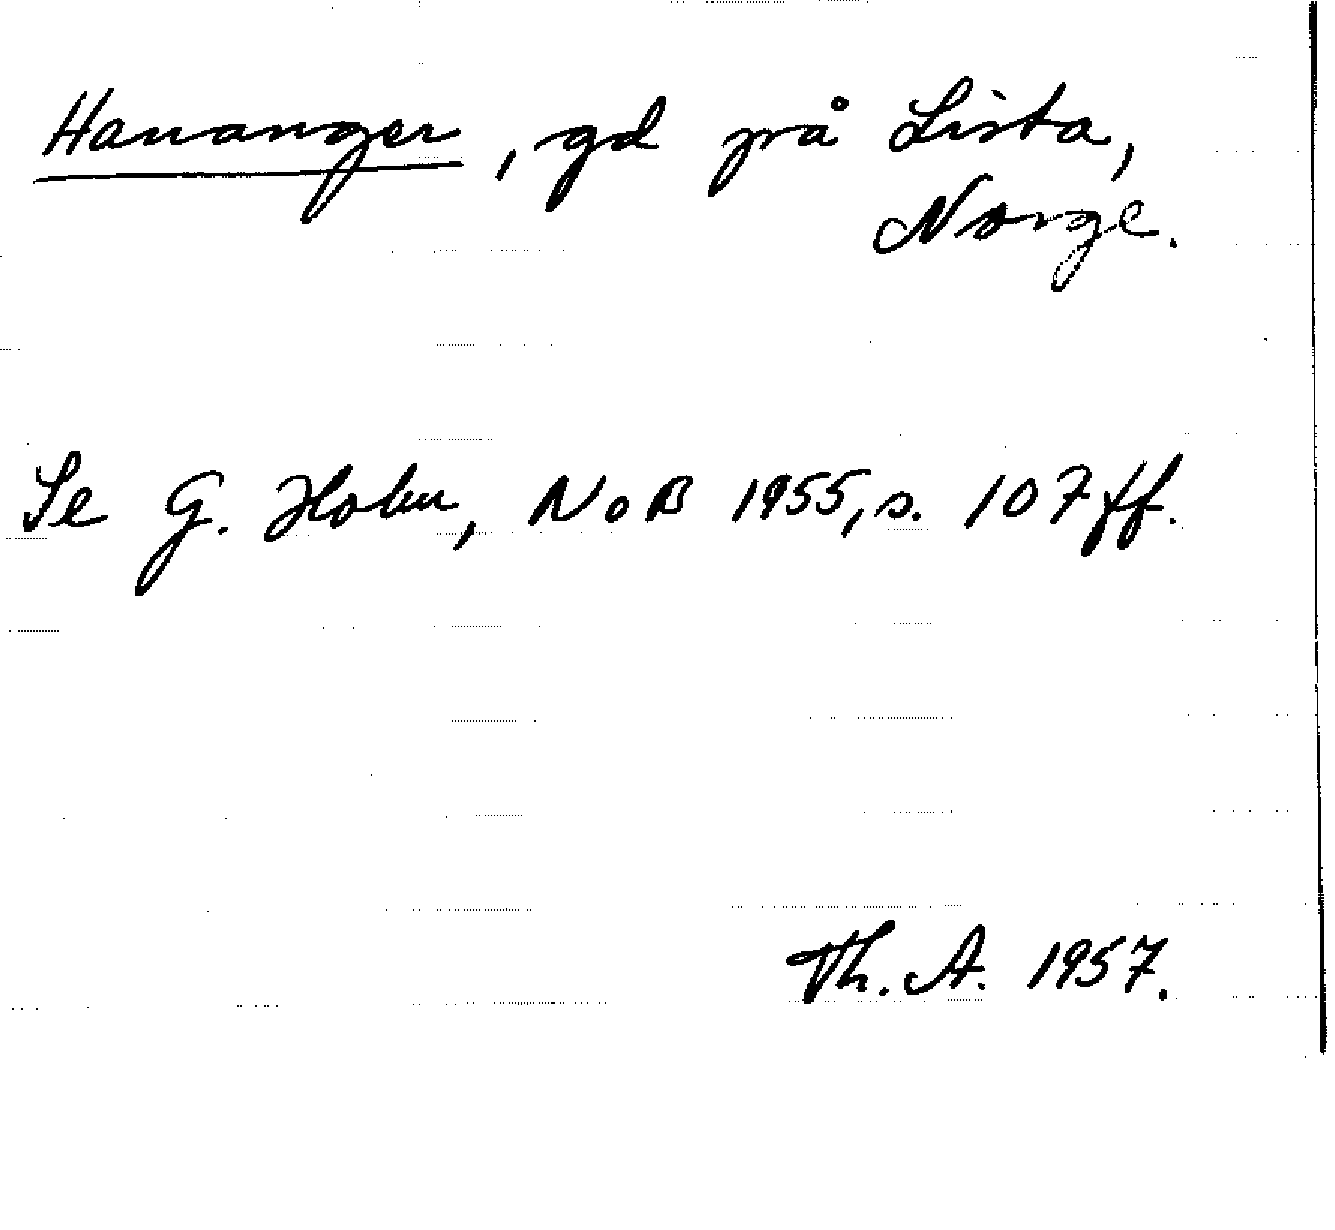 Hananger, gd på Lista,
Norge.
Se G. Holm, NoB 1955, s. 107 ff.
Th. A. 1957.